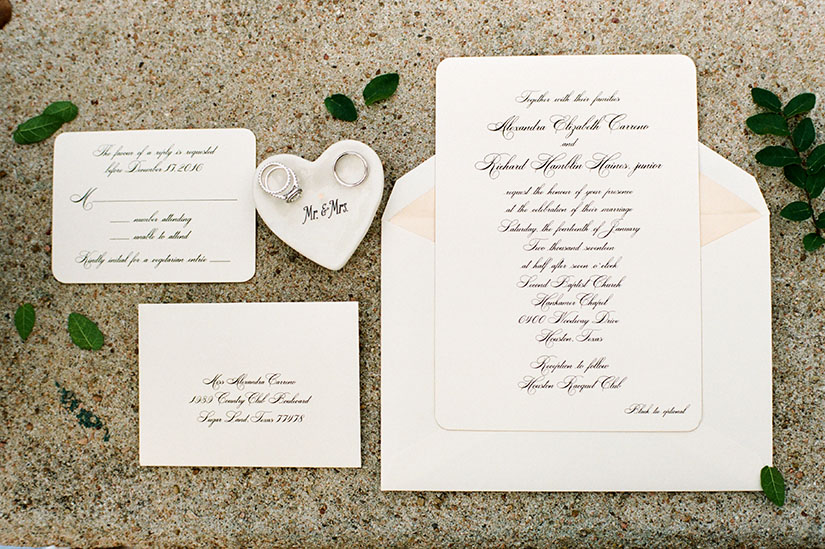 The favour of a reply is requested
before December 17, 2016
M
number attending
unable to attend
Kindly initial for a vegetarian entrée
Mr. & Mrs.
Miss Alexandra Carreno
1989 Country Club Boulevard
Sugar Land, Texas 77978
Together with their families
Alexandra Elizabeth Carreno
and
Richard Hamblin Haines, junior
request the honour of your presence
at the celebration of their marriage
Saturday, the fourteenth of January
Two thousand seventeen
at half after seven o'clock
Second Baptist Church
Hankamer Chapel
6400 Woodway Drive
Houston, Texas
Reception to follow
Houston Racquet Club
Black tie optional